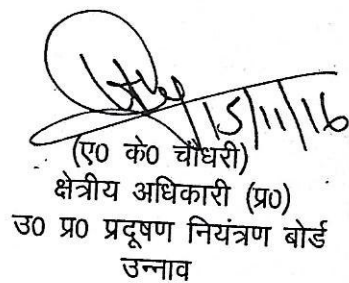 15/11/16
(ए० के० चौधरी)
क्षेत्रीय अधिकारी (प्र०)
उ० प्र० प्रदूषण नियंत्रण बोर्ड
उन्नाव